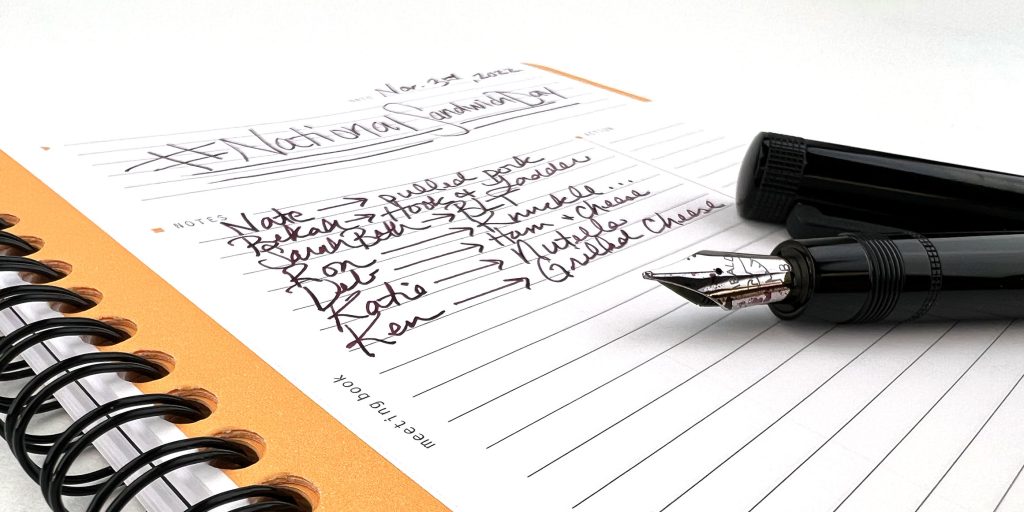 Nov. 3rd, 2022
#NationalSandwichDay
ACTION
NOTES
Nate → pulled pork
→ Hook & Ladder
Sarah Beth → BLT
Ron →
Deb → Ham + Cheese
Katie → Nutella
Ken → Grilled Cheese
meeting book